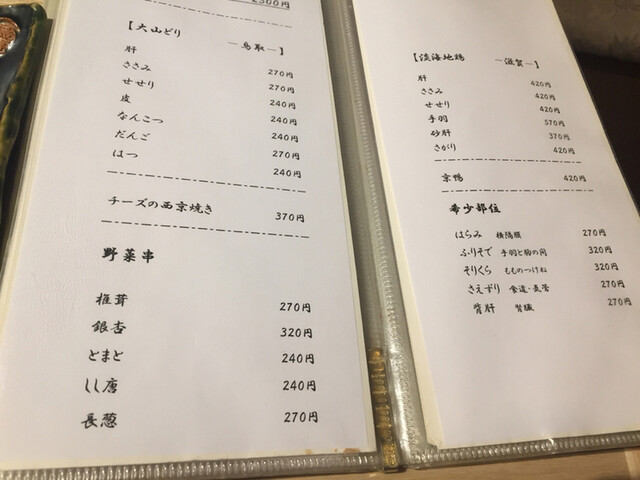 【大山どり －鳥取－】
肝 270円
ささみ 270円
せせり 240円
皮 240円
なんこつ 240円
だんご 270円
はつ 240円
チーズの西京焼き 370円
野菜串
椎茸 270円
銀杏 320円
とまと 240円
しし唐 240円
長葱 270円
【淡海地鶏 －滋賀－】
肝 420円
ささみ 420円
せせり 420円
手羽 370円
砂肝 370円
さがり 420円
京鴨 420円
希少部位
はらみ 横隔膜 270円
ふりそで 手羽と胸の間 320円
そりくら もものつけね 320円
さえずり 食道・気管 270円
背肝 腎臓 270円